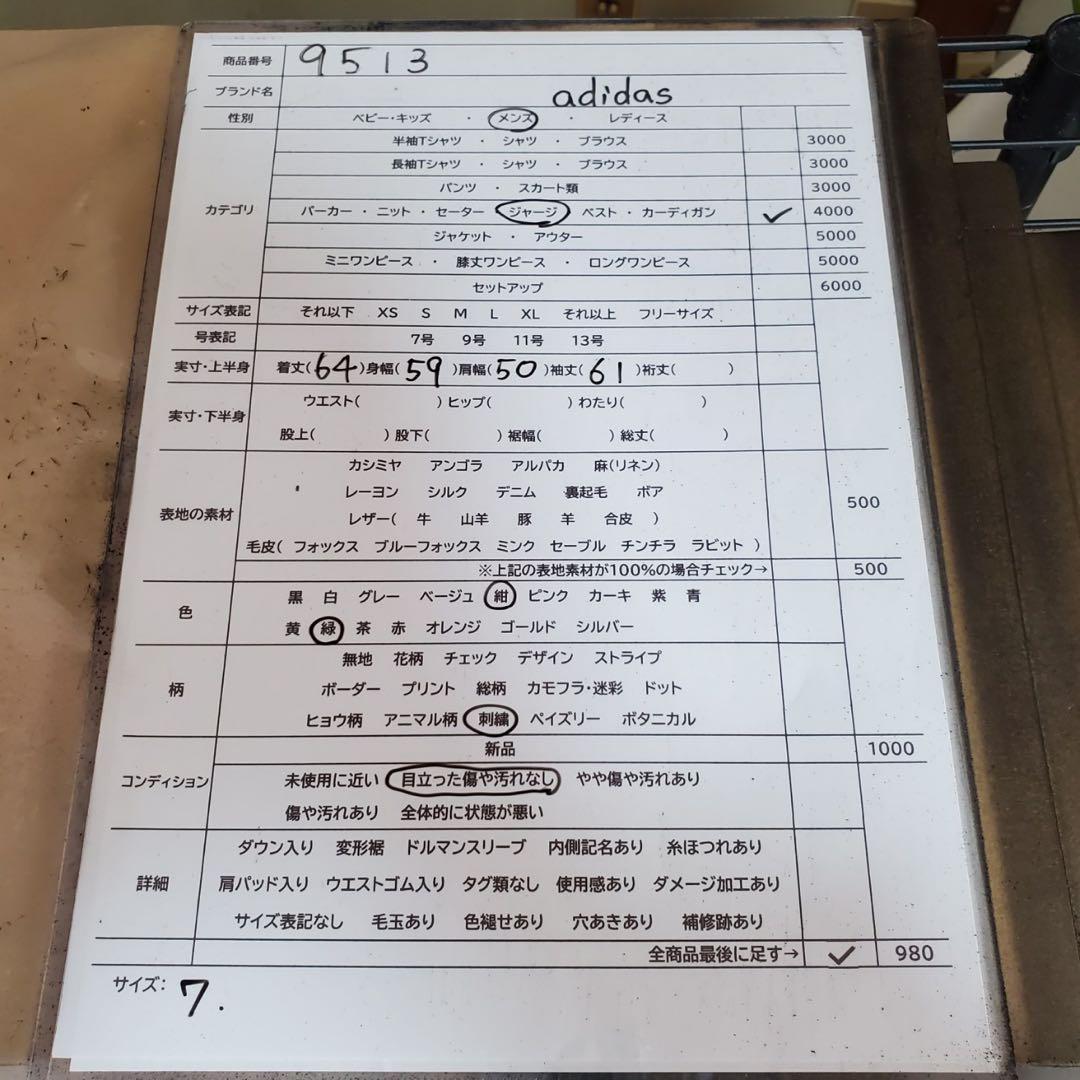 商品番号 9513
ブランド名 adidas
性別 ベビー・キッズ ・ メンズ ・ レディース
半袖Tシャツ ・ シャツ ・ ブラウス 3000
長袖Tシャツ ・ シャツ ・ ブラウス 3000
パンツ ・ スカート類 3000
カテゴリ パーカー ・ ニット ・ セーター ジャージ ベスト ・ カーディガン ✓ 4000
ジャケット ・ アウター 5000
ミニワンピース ・ 膝丈ワンピース ・ ロングワンピース 5000
セットアップ 6000
サイズ表記 それ以下 XS S M L XL それ以上 フリーサイズ
号表記 7号 9号 11号 13号
実寸・上半身 着丈(64)身幅(59)肩幅(50)袖丈(61)裄丈( )
実寸・下半身 ウエスト( )ヒップ( )わたり( )
股上( )股下( )裾幅( )総丈( )
カシミヤ アンゴラ アルパカ 麻(リネン)
レーヨン シルク デニム 裏起毛 ボア 500
表地の素材 レザー( 牛 山羊 豚 羊 合皮 )
毛皮( フォックス ブルーフォックス ミンク セーブル チンチラ ラビット )
※上記の表地素材が100%の場合チェック→ 500
色 黒 白 グレー ベージュ 紺 ピンク カーキ 紫 青
黄 緑 茶 赤 オレンジ ゴールド シルバー
無地 花柄 チェック デザイン ストライプ
柄 ボーダー プリント 総柄 カモフラ・迷彩 ドット
ヒョウ柄 アニマル柄 刺繍 ペイズリー ボタニカル
新品 1000
コンディション 未使用に近い 目立った傷や汚れなし やや傷や汚れあり
傷や汚れあり 全体的に状態が悪い
ダウン入り 変形裾 ドルマンスリーブ 内側記名あり 糸ほつれあり
詳細 肩パッド入り ウエストゴム入り タグ類なし 使用感あり ダメージ加工あり
サイズ表記なし 毛玉あり 色褪せあり 穴あきあり 補修跡あり
全商品最後に足す→ ✓ 980
サイズ: 7.